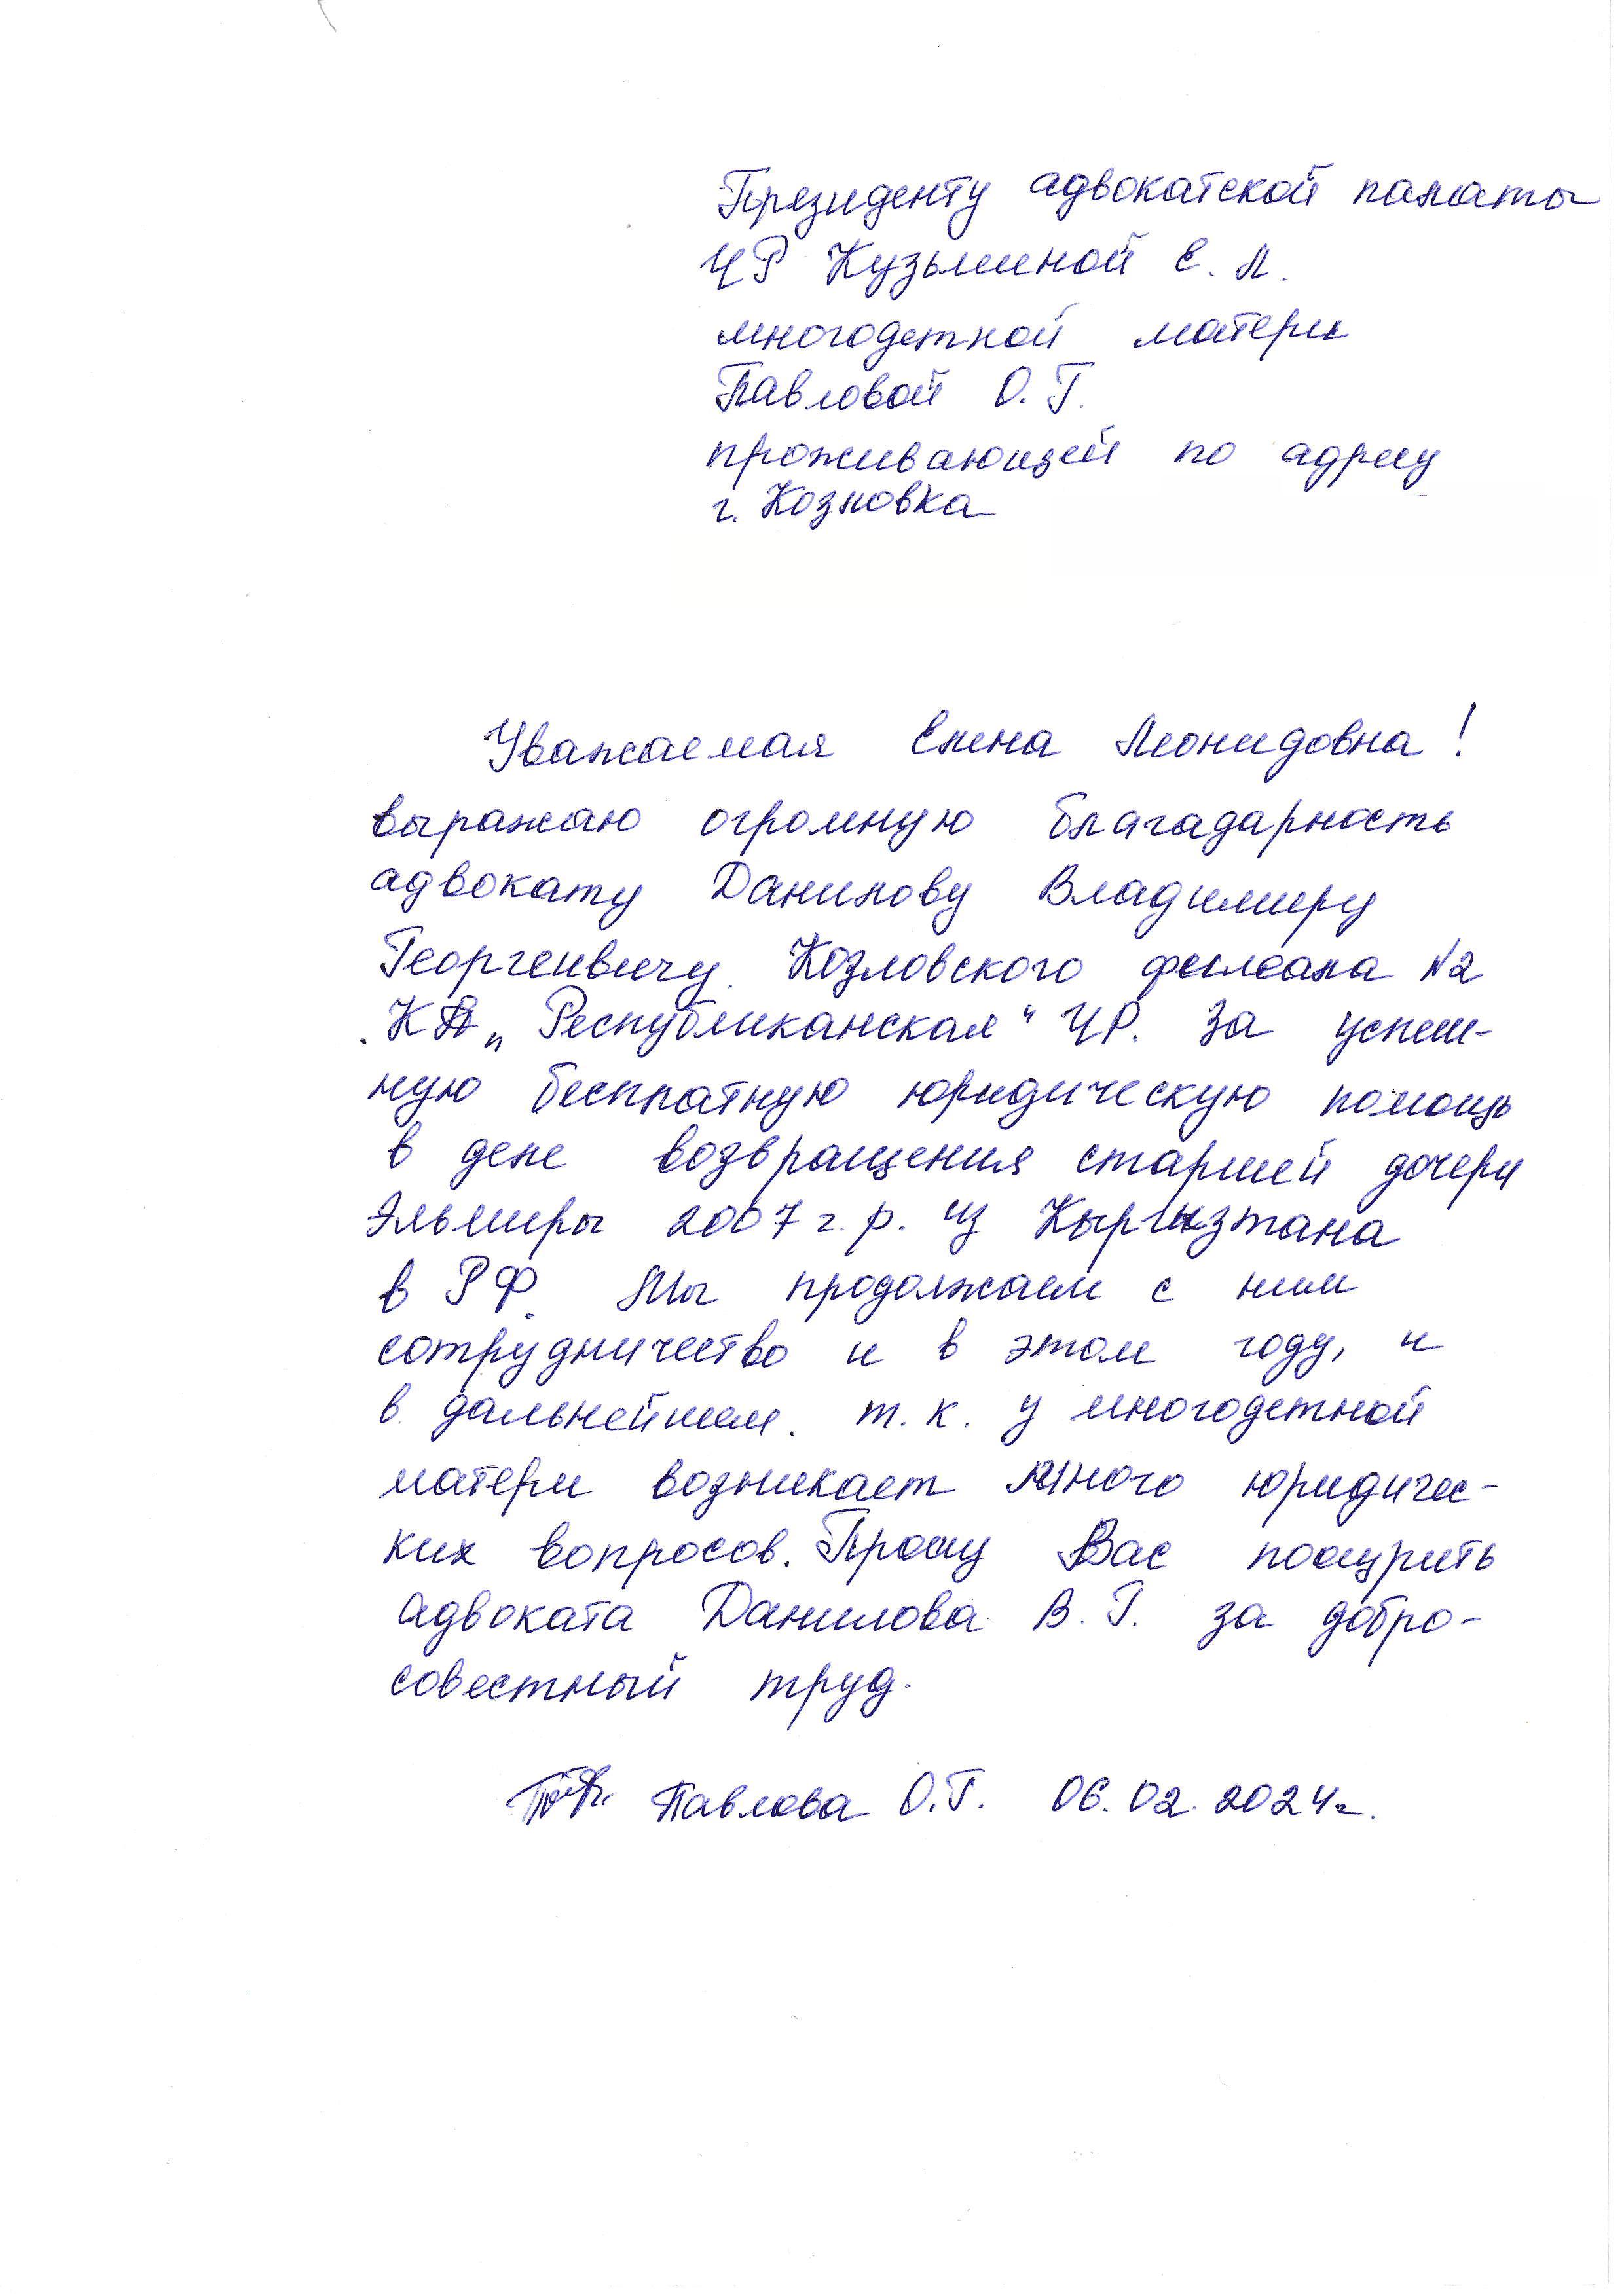 Президенту адвокатской палаты
ЧР Кузьминой Е. Л.
многодетной матери
Павловой О. Г.
проживающей по адресу
г. Козловка
Уважаемая Елена Леонидовна!
выражаю огромную благадарность
адвокату Данилову Владимиру
Георгенвичу. Козловского филиала №2
КА „Республиканская“ ЧР. За успеш-
ную бесплатную юридическую помощь
в деле возвращения старшей дочери
Эльмиры 2007 г. р. из Кыргызтана
в РФ. Мы продолжаем с ним
сотрудничество и в этом году, и
в дальнейшем. т. к. у многодетной
матери возникает много юридичес-
ких вопросов. Прошу Вас поощрить
адвоката Данилова В. Г. за добро-
совестный труд.
Павлова О.Г. 06.02.2024г.